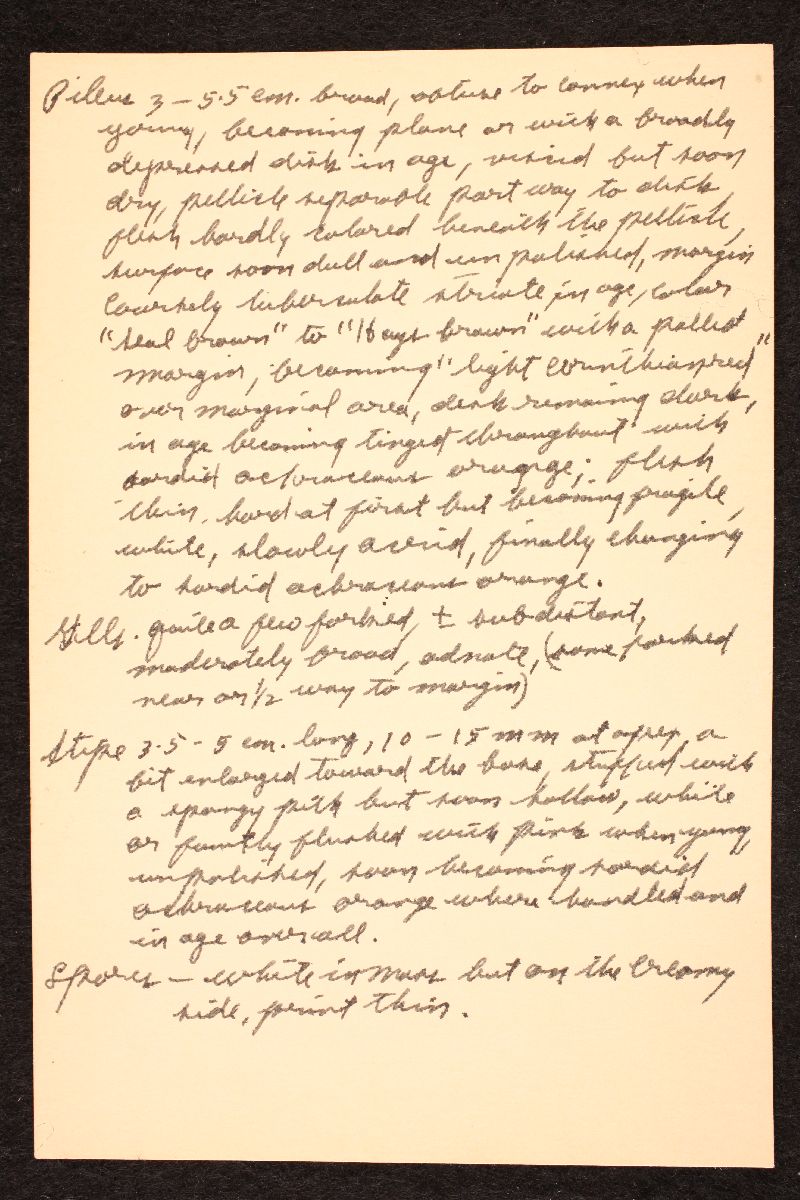 Pileus 3 – 5.5 cm. broad, obtuse to convex when
young, becoming plane or with a broadly
depressed disk in age, viscid but soon
dry, pellicle separable part way to disk,
flesh hardly colored beneath the pellicle,
surface soon dull and unpolished, margin
coarsely tuberculate striate in age, color
"seal brown" to "Hays brown" with a pallid
margin, becoming "light corinthian red"
over marginal area, disk remaining dark,
in age becoming tinged throughout with
sordid ochraceous orange; flesh
thin, hard at first but becoming fragile,
white, slowly acrid, finally changing
to sordid ochraceous orange.
Gills. quite a few forked, ± subdistant,
moderately broad, adnate, (some forked
near or 1/2 way to margin)
Stipe 3.5 - 5 cm. long, 10 – 15 mm at apex, a
bit enlarged toward the base, stuffed with
a spongy pith but soon hollow, white
or faintly flushed with pink when young,
unpolished, soon becoming sordid
ochraceous orange where handled and
in age overall.
Spores – white in mass but on the creamy
side, print thin.